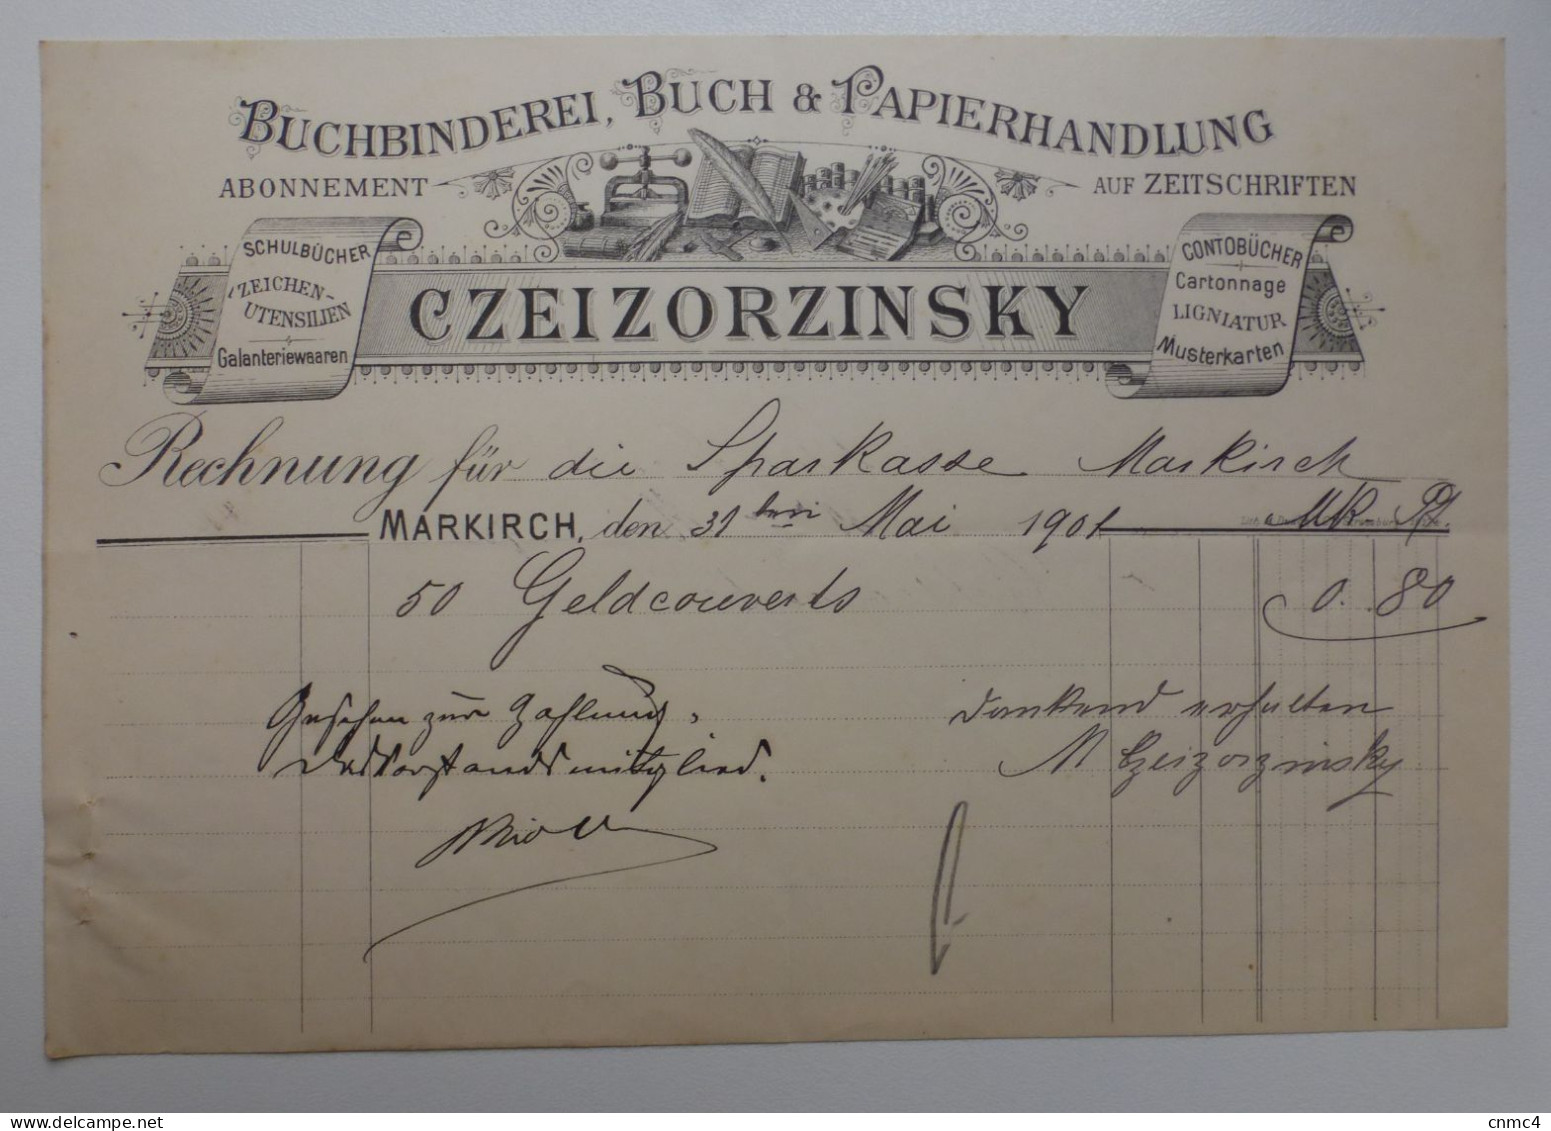 BUCHBINDEREI, BUCH & PAPIERHANDLUNG
ABONNEMENT AUF ZEITSCHRIFTEN
SCHULBÜCHER
ZEICHEN-
UTENSILIEN
Galanteriewaaren
CZEIZORZINSKY
CONTOBÜCHER
Cartonnage
LIGNIATUR
Musterkarten
Rechnung für die Sparkasse Markirch
MARKIRCH, den 31 ten Mai 1901 Mk Pf.
50 Geldcouverts 0.80
Gesehen zur Zahlung,
Das Vorstandsmitglied.
Dankend erhalten
M Czeizorzinsky
cnmc4